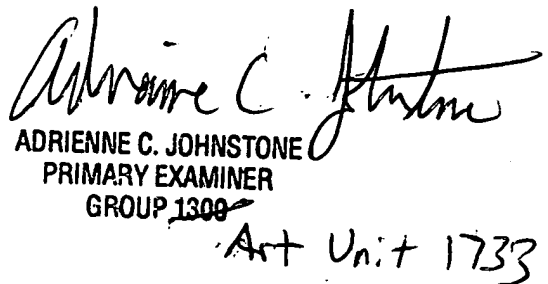 Adrienne C. Johnstone
ADRIENNE C. JOHNSTONE
PRIMARY EXAMINER
GROUP 1300
Art Unit 1733